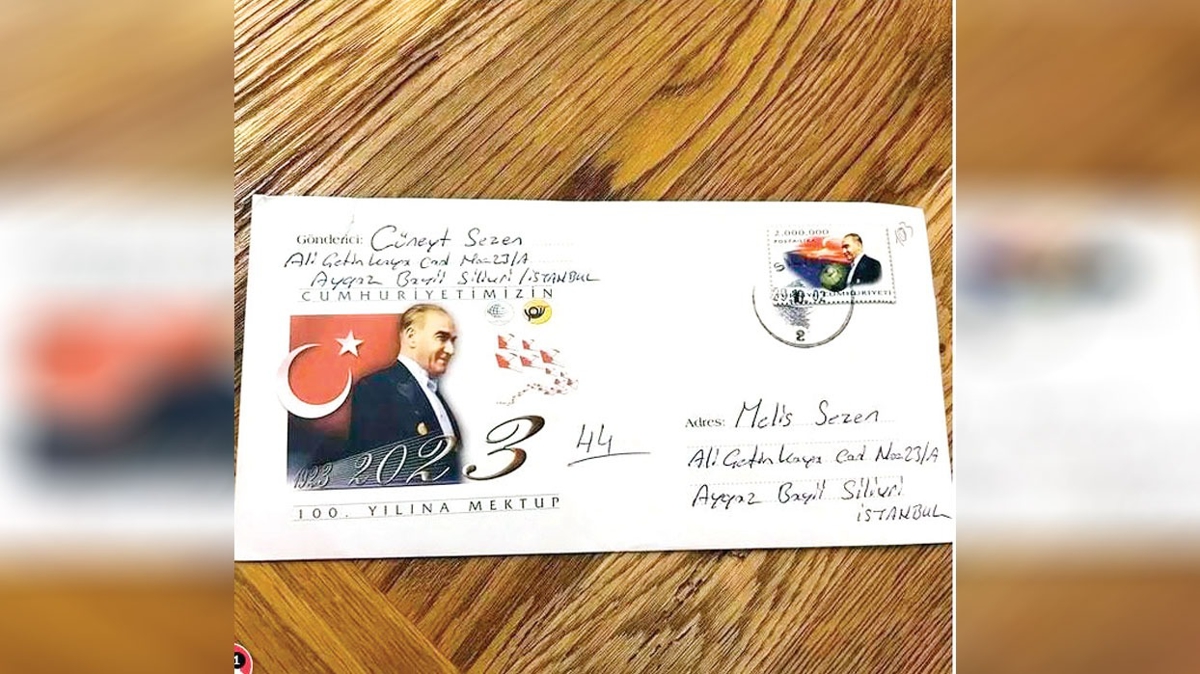 Gönderici: Cüneyt Sezen
Ali Çetin kaya Cad No=23/A
Aygaz Bayii Silivri / İSTANBUL
CUMHURİYETİMİZİN
1923 2023
100. YILINA MEKTUP
44
2.000.000
2
Adres: Melis Sezen
Ali Çetin kaya Cad No=23/A
Aygaz Bayii Silivri
İSTANBUL
1